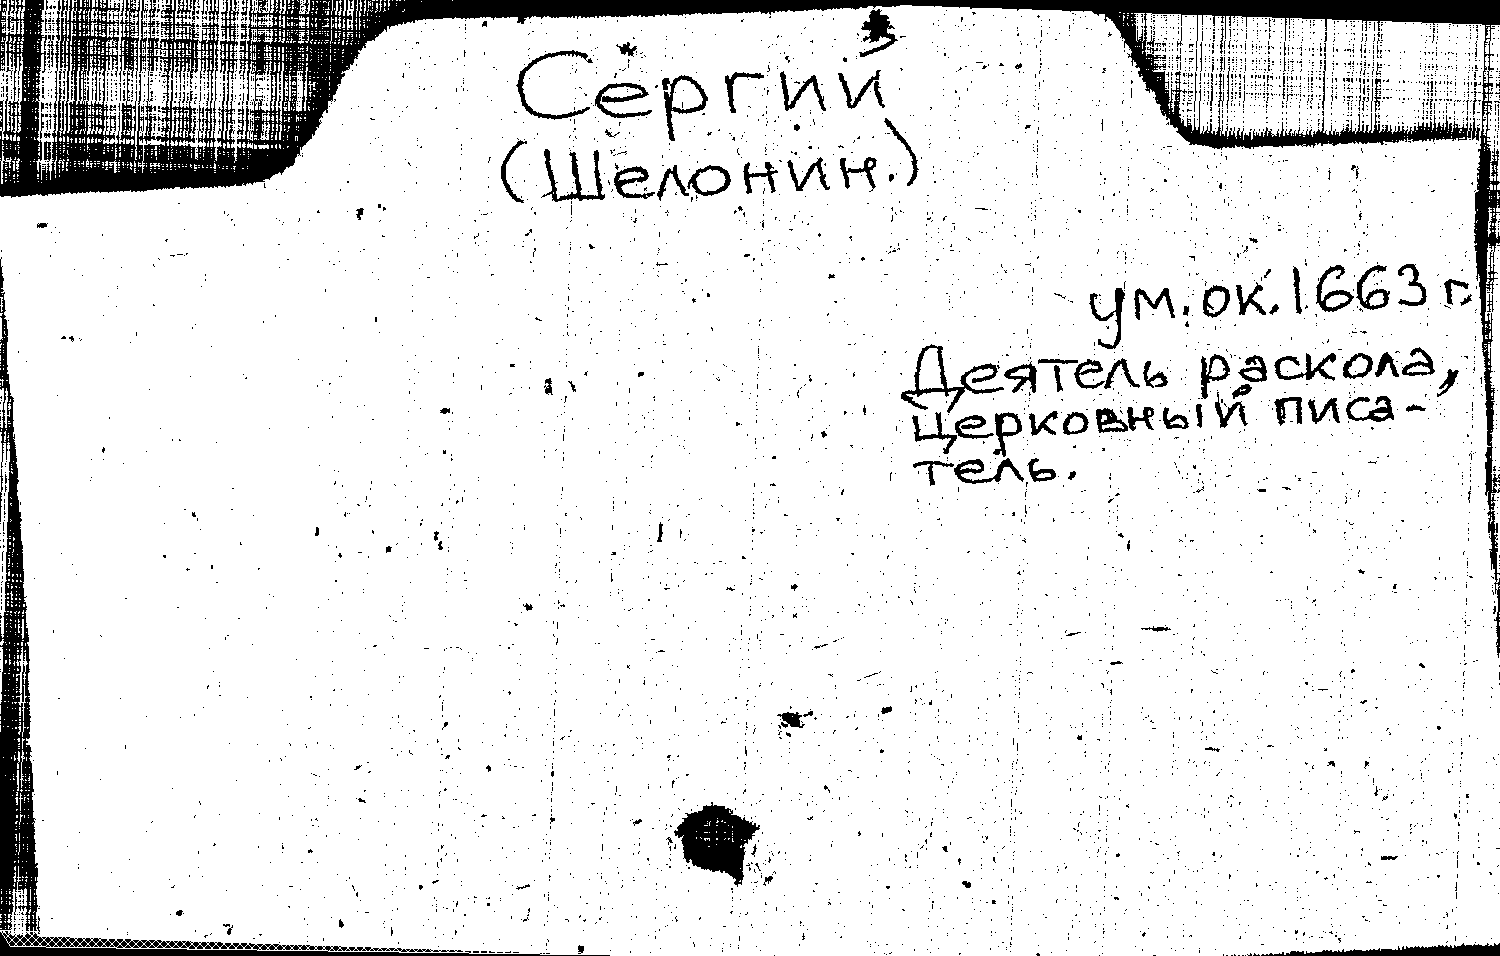 Сергий
(Шелонин.)
ум. ок. 1663 г.
Деятель раскола,
церковный писа-
тель.